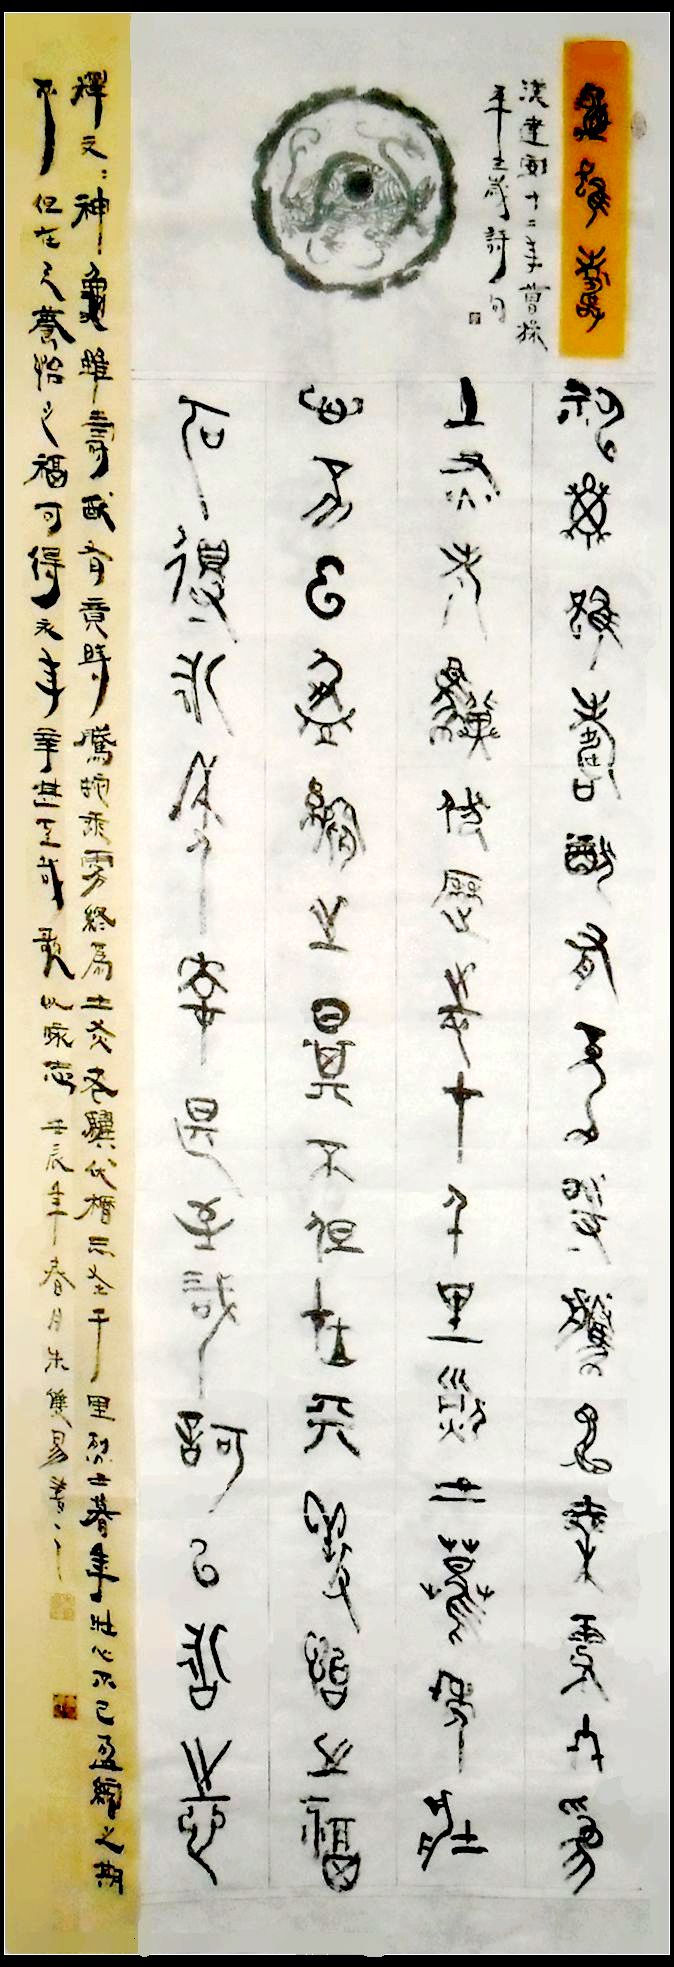 龜雖壽
漢建安十二年曹操
歲詩句
神龜雖壽猷有竟時騰蛇乘霧冬為
土灰老驥伏歷志才千里烈士暮年壯
心不已盈縮之期不但在天養怡之福
可得永年幸甚至哉訶以詠志
釋文：神龜雖壽猷有竟時騰蛇乘霧終為土灰老驥伏櫪志在千里烈士暮年壯心不已盈縮之期
不但在天養怡之福可得永年幸甚至哉歌以咏志壬辰年春月朱雙易書